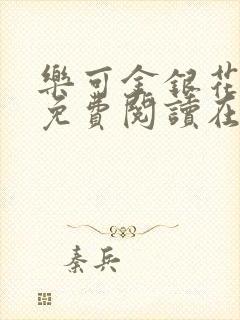 樂可金銀花
免費閱讀在
秦兵